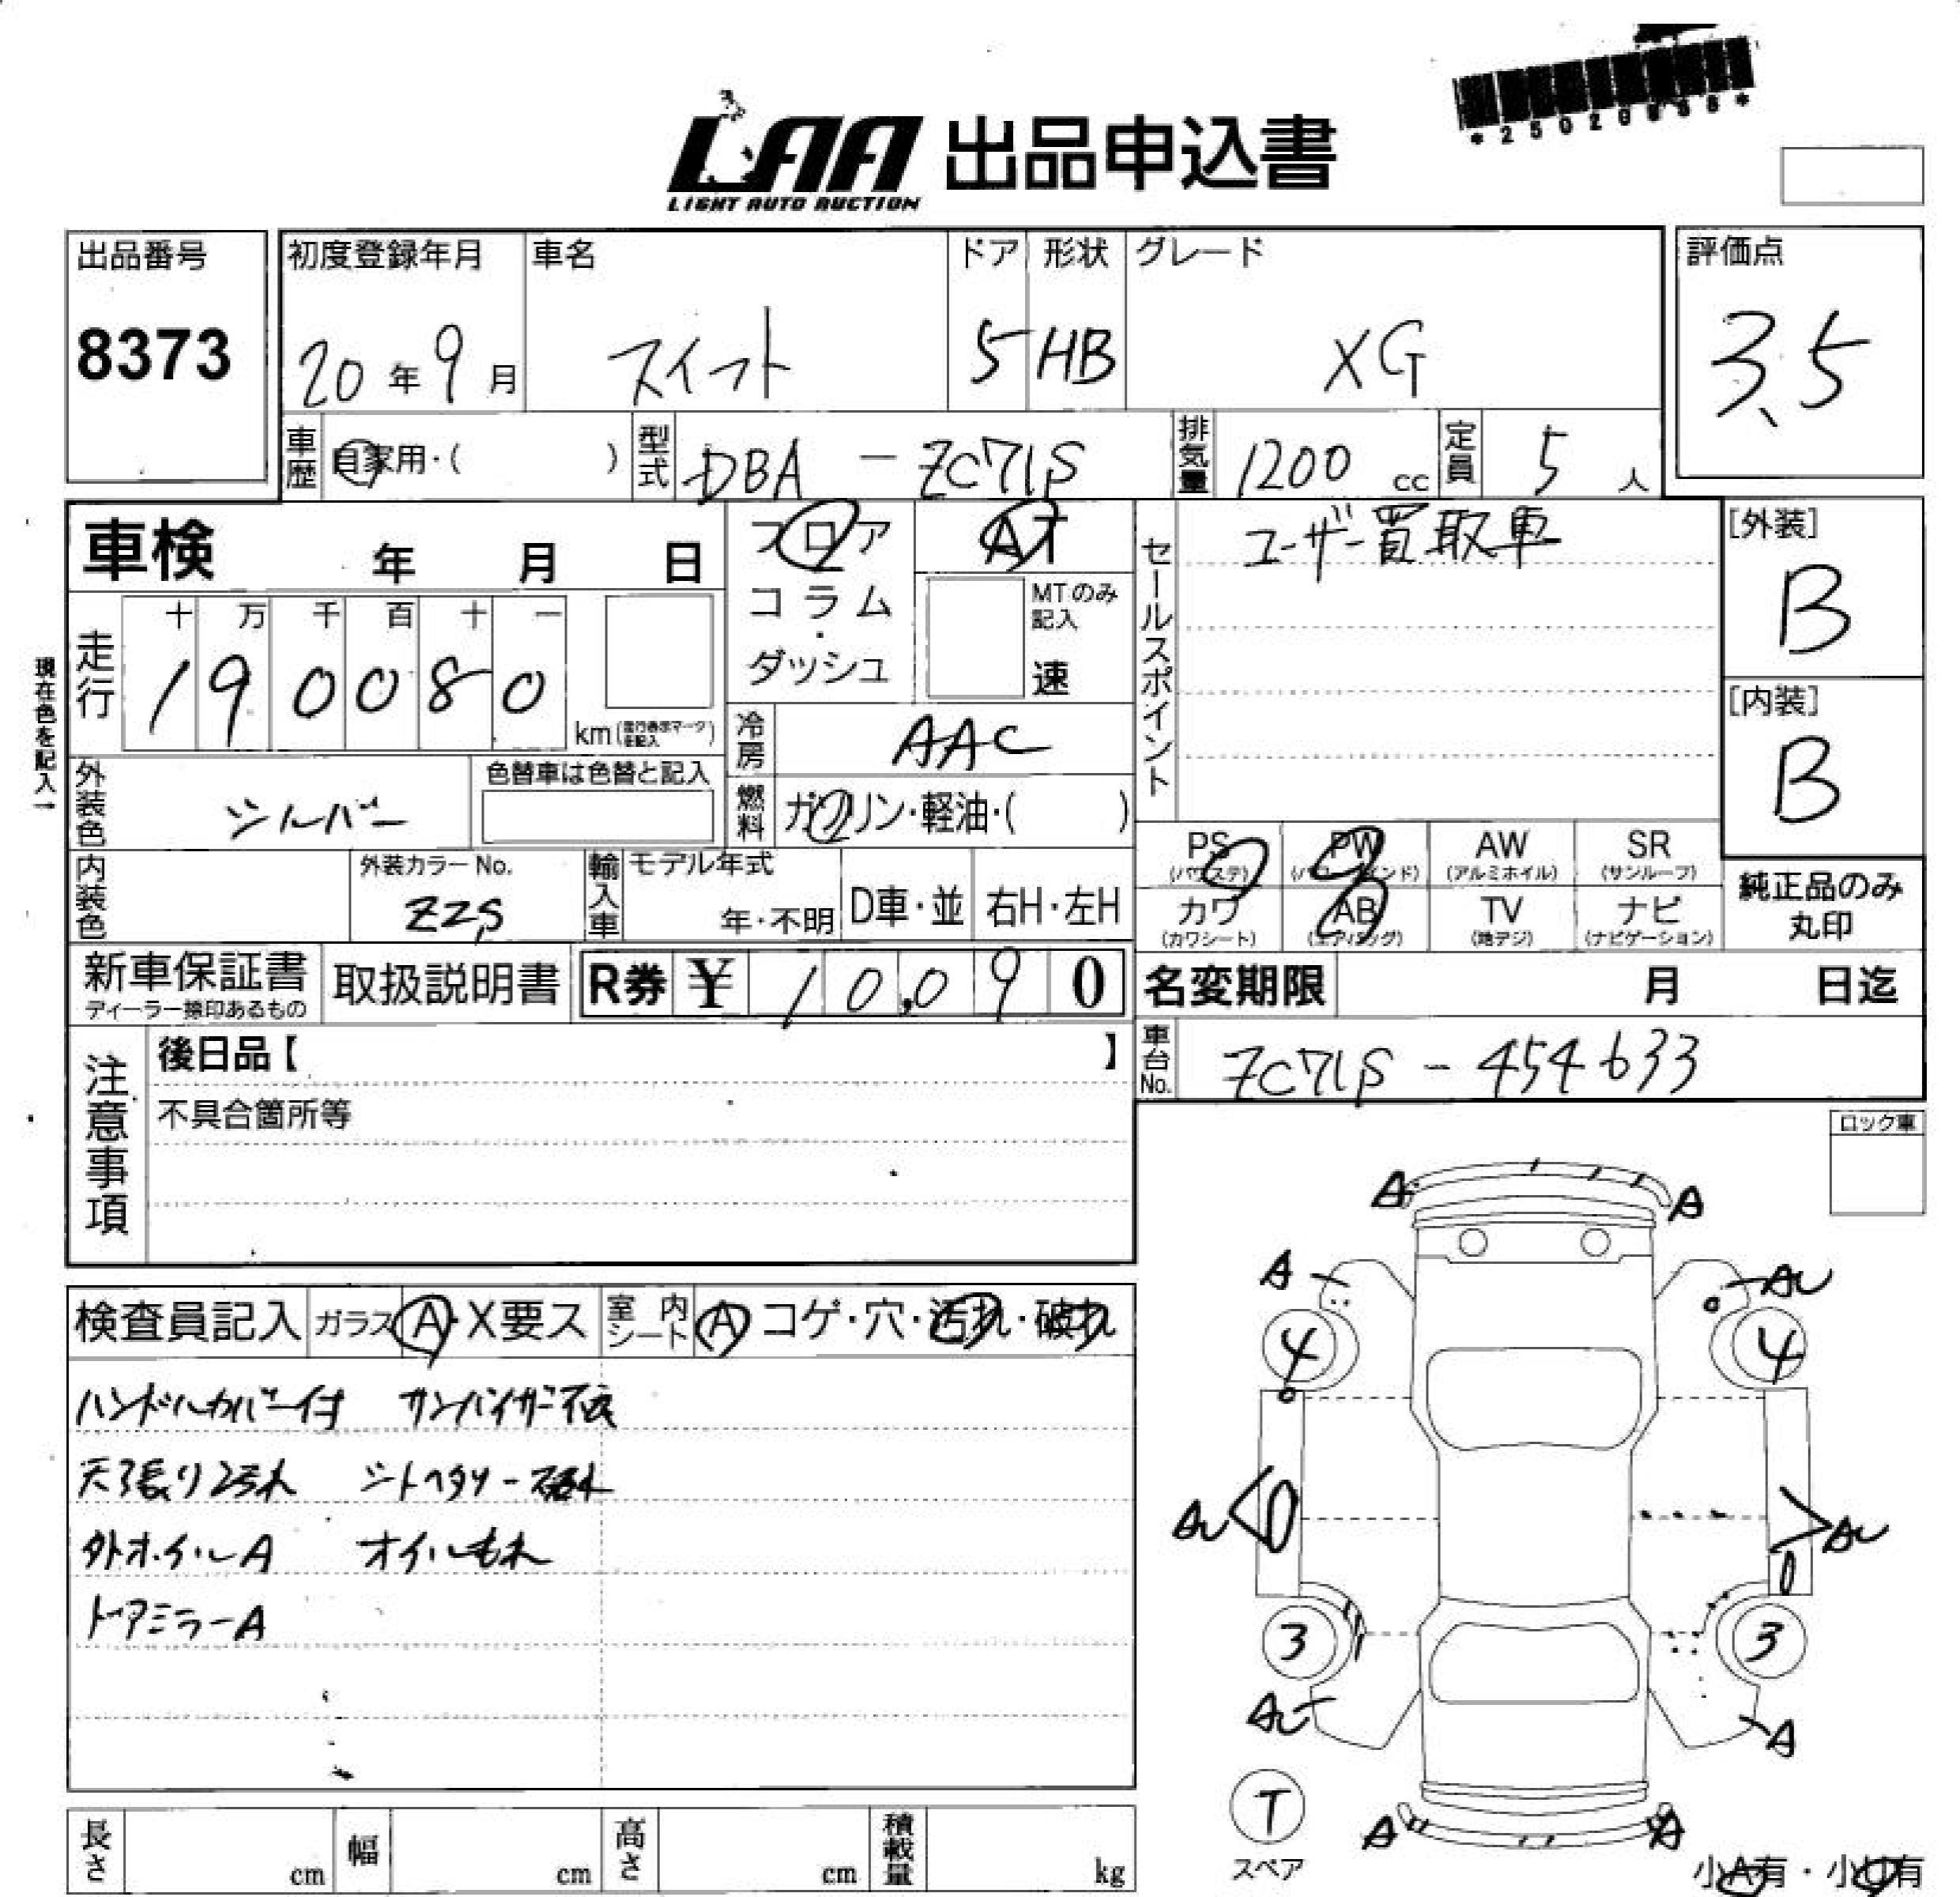 LAA 出品申込書
LIGHT AUTO AUCTION
出品番号
8373
初度登録年月
20年9月
車名
スイフト
ドア
5
形状
HB
グレード
XG
評価点
3.5
車歴 自家用・( )
型式 DBA - ZC71S
排気量 1200 cc
定員 5 人
車検 年 月 日
フロア
コラム
・
ダッシュ
AT
MTのみ
記入
速
セールスポイント
ユーザー買取車
[外装]
B
[内装]
B
現在色を記入→
走行
十 万 千 百 十 一
1 9 0 0 8 0
km
冷房 AAC
外装色 シルバー
色替車は色替と記入
燃料 ガソリン・軽油・( )
PS
(パワステ)
PW
AW
(アルミホイル)
SR
(サンルーフ)
カワ
(カワシート)
AB
(エアバッグ)
TV
(地デジ)
ナビ
(ナビゲーション)
純正品のみ
丸印
内装色
外装カラーNo.
ZZS
輸入車
モデル年式
年・不明
D車・並
右H・左H
新車保証書
ディーラー捺印あるもの
取扱説明書
R券 ¥ 10,090
名変期限 月 日迄
車台No. ZC71S - 454633
注意事項
後日品【 】
不具合箇所等
ロック車
検査員記入
ガラス A・X要ス
室内シート A コゲ・穴・汚れ・破れ
ハンドルカバー付
天張り汚れ
外ホイルA オイルもれ
ドアミラーA
A A
A AU
4 4
AU AU
3 3
AU A
T
スペア
A A
小A有・小U有
長さ cm
幅 cm
高さ cm
積載量 kg